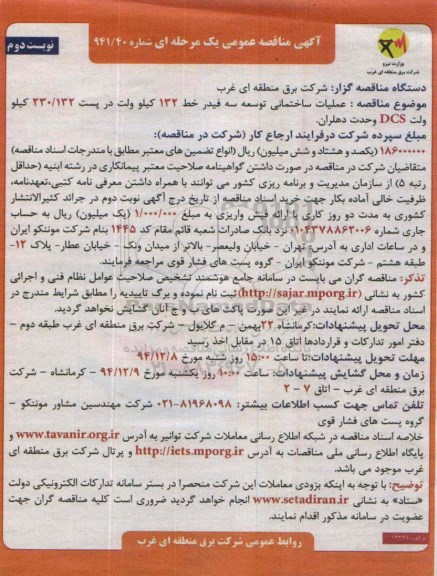 وزارت نیرو
شرکت برق منطقه ای غرب
آگهی مناقصه عمومی یک مرحله ای شماره ۹۴۱/۴۰
نوبت دوم
دستگاه مناقصه گزار: شرکت برق منطقه ای غرب
موضوع مناقصه : عملیات ساختمانی توسعه سه فیدر خط ۱۳۲ کیلو ولت در پست ۲۳۰/۱۳۲ کیلو
ولت DCS وحدت دهلران.
مبلغ سپرده شرکت درفرایند ارجاع کار (شرکت در مناقصه):
۱۸۶۰۰۰۰۰۰ (یکصد و هشتاد و شش میلیون) ریال (انواع تضمین های معتبر مطابق با مندرجات اسناد مناقصه)
متقاضیان شرکت در مناقصه در صورت داشتن گواهینامه صلاحیت معتبر پیمانکاری در رشته ابنیه (حداقل
رتبه ۵) از سازمان مدیریت و برنامه ریزی کشور می توانند با همراه داشتن معرفی نامه کتبی،تعهدنامه،
ظرفیت خالی آماده بکار جهت خرید اسناد مناقصه از تاریخ درج آگهی نوبت دوم در جرائد کثیرالانتشار
کشوری به مدت دو روز کاری با ارائه فیش واریزی به مبلغ ۱/۰۰۰/۰۰۰ (یک میلیون) ریال به حساب
جاری شماره ۰۱۰۴۳۷۸۸۶۲۰۰۶ نزد بانک صادرات شعبه قائم مقام کد ۱۴۴۵ بنام شرکت موننکو ایران
و در ساعات اداری به آدرس: تهران - خیابان ولیعصر- بالاتر از میدان ونک - خیابان عطار- پلاک ۱۲-
طبقه هشتم - شرکت موننکو ایران - گروه پست های فشار قوی مراجعه فرمایند.
تذکر: مناقصه گران می بایست در سامانه جامع هوشمند تشخیص صلاحیت عوامل نظام فنی و اجرائی
کشور به نشانی (http://sajar.mporg.ir) ثبت نام نموده و برگ تاییدیه را مطابق شرایط مندرج در
اسناد مناقصه ارائه نمایند در غیر این صورت پاکت های ب و ج آنان گشایش نخواهد گردید.
محل تحویل پیشنهادات:کرمانشاه ۲۲بهمن - م گلایول - شرکت برق منطقه ای غرب طبقه دوم -
دفتر امور تدارکات و قراردادها اتاق ۱۵ در مقابل اخذ رسید
مهلت تحویل پیشنهادات:تا ساعت ۱۵:۰۰ روز شنبه مورخ ۹۴/۱۲/۸
زمان و محل گشایش پیشنهادات: ساعت ۱۰:۰۰ روز یکشنبه مورخ ۹۴/۱۲/۹ - کرمانشاه - شرکت
برق منطقه ای غرب - اتاق ۷ - ۲
تلفن تماس جهت کسب اطلاعات بیشتر: ۸۱۹۶۸۰۹۸-۰۲۱ شرکت مهندسین مشاور موننکو -
گروه پست های فشار قوی
خلاصه اسناد مناقصه در شبکه اطلاع رسانی معاملات شرکت توانیر به آدرس www.tavanir.org.ir و
پایگاه اطلاع رسانی ملی مناقصات به آدرس http://iets.mporg.ir و پرتال شرکت برق منطقه ای
غرب موجود می باشد.
توضیح: با توجه به اینکه بزودی معاملات این شرکت منحصرا در بستر سامانه تدارکات الکترونیکی دولت
«ستاد» به نشانی www.setadiran.ir انجام خواهد گردید ضروری است کلیه مناقصه گران جهت
عضویت در سامانه مذکور اقدام نمایند.
روابط عمومی شرکت برق منطقه ای غرب